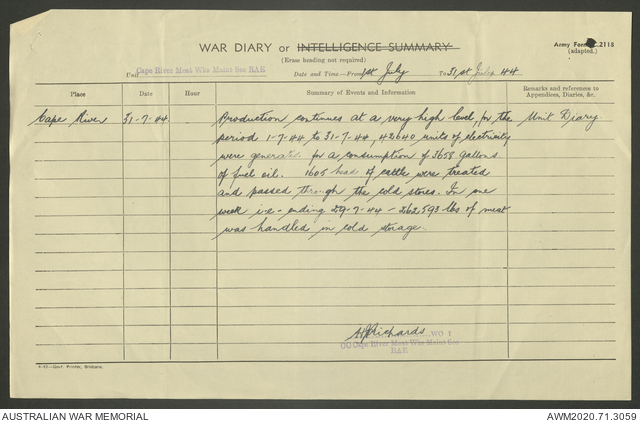 WAR DIARY or INTELLIGENCE SUMMARY
Army Form C.2118
(adapted.)
(Erase heading not required)
Unit Cape River Meat Wks Maint Sec RAE
Date and Time.—From 1st July To 31st July 44
Place Date Hour Summary of Events and Information Remarks and references to
Appendices, Diaries, &c.
Cape River 31-7-44 Production continues at a very high level, for the Unit Diary
period 1-7-44 to 31-7-44, 42640 units of electricity
were generated for a consumption of 3658 gallons
of fuel oil. 1605 head of cattle were treated
and passed through the cold stores. In one
week i.e - ending 29-7-44 - 262593 lbs of meat
was handled in cold storage.
Richards WO 1
OC Cape River Meat Wks Maint Sec
RAE
Govt. Printer, Brisbane.
AUSTRALIAN WAR MEMORIAL
AWM2020.71.3059